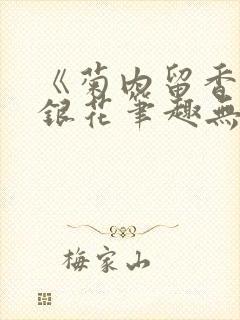 《菊内留香
銀花筆趣無
梅家山